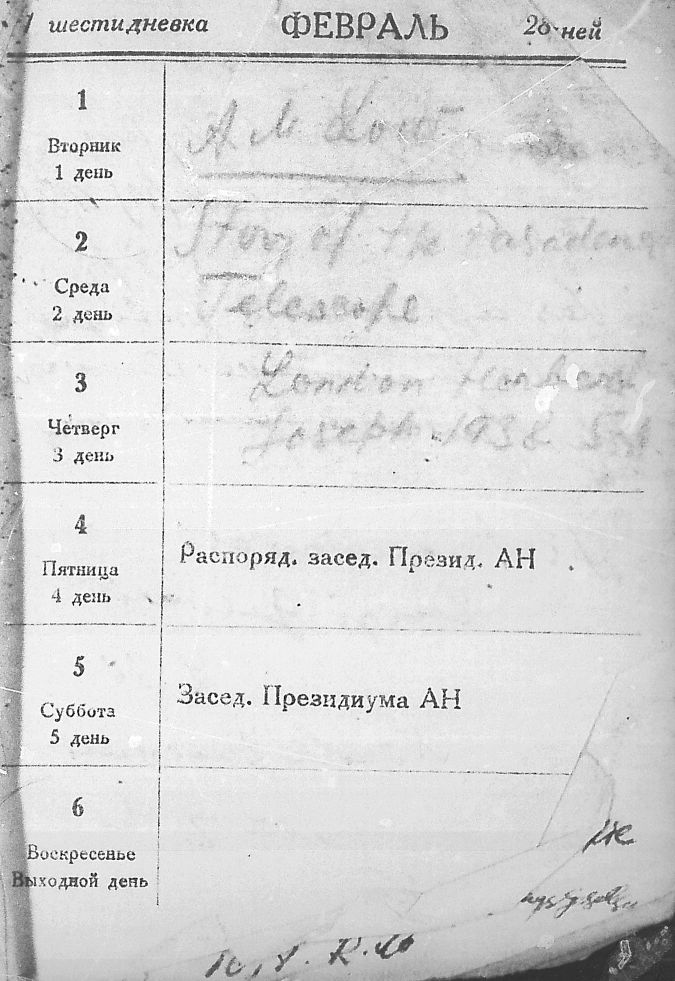 1 шестидневка ФЕВРАЛЬ 28 ней
1
Вторник
1 день
A. M.
2
Среда
2 день
Story of the Pasadena
Telescope
3
Четверг
3 день
London Herbert
Joseph 1938
4
Пятница
4 день
Распоряд. засед. Презид. АН
5
Суббота
5 день
Засед. Президиума АН
6
Воскресенье
Выходной день